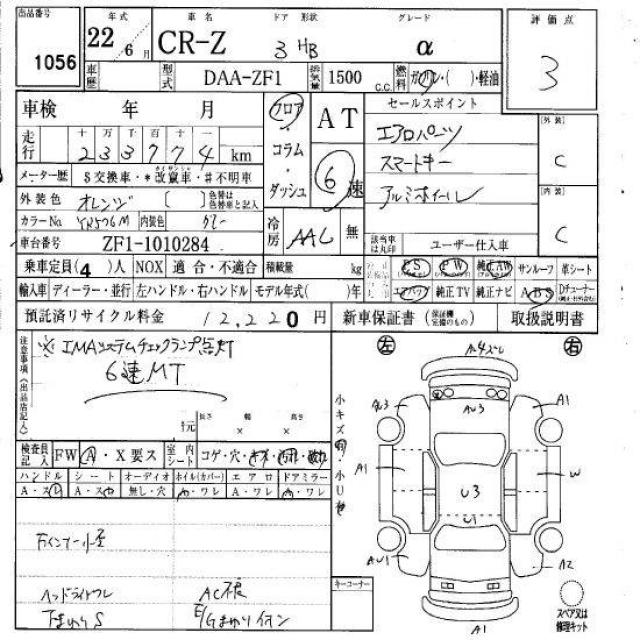 出品番号
1056
年式
22年
6月
車名
CR-Z
ドア 形状
3 HB
グレード
α
評価点
3
車歴
型式
DAA-ZF1
排気量
1500 c.c.
燃料
ガソリン・( )・軽油
車検 年 月
フロア・コラム・ダッシュ
AT
6速
セールスポイント
エアロパーツ
スマートキー
アルミホイール
外装
C
内装
C
走行
十 万 千 百 十 一
233774 km
メーター歴
$交換車・*改竄車・#不明車
外装色
オレンジ
[ ]
色替は色替車と記入
カラーNo
YR576M
内装色
グレー
冷房
AAC
無
該当車は丸印
ユーザー仕入車
車台番号
ZF1-1010284
乗車定員(4)人
NOX
適合・不適合
積載量
kg
PS
PW
純正AW
サンルーフ
革シート
輸入車
ディーラー・並行
左ハンドル・右ハンドル
モデル年式( )年
エアバッグ
純正TV
純正ナビ
ABS
Dチューナー
預託済リサイクル料金
12,220円
新車保証書
取扱説明書
注意事項(出品店記入)
※IMAシステムチェックランプ点灯
6速MT
長さ 幅 高さ
× ×
検査員記入
FW
A・X要ス
室内シート
コゲ・穴・キズ
ハンドル
シート
オーディオ
ホイル(カバー)
エアロ
ドアミラー
A・ス
A・ス
無し・穴
ワレ
A・ワレ
ワレ
右インナー小歪
ヘッドライトワレ
下まわりS
AC不良
E/Gまわりイオン
キーコーナー
左
右
A3
AU3
A1
A1
W
U3
U1
AU1
A2
A1
スペア又は
修理キット